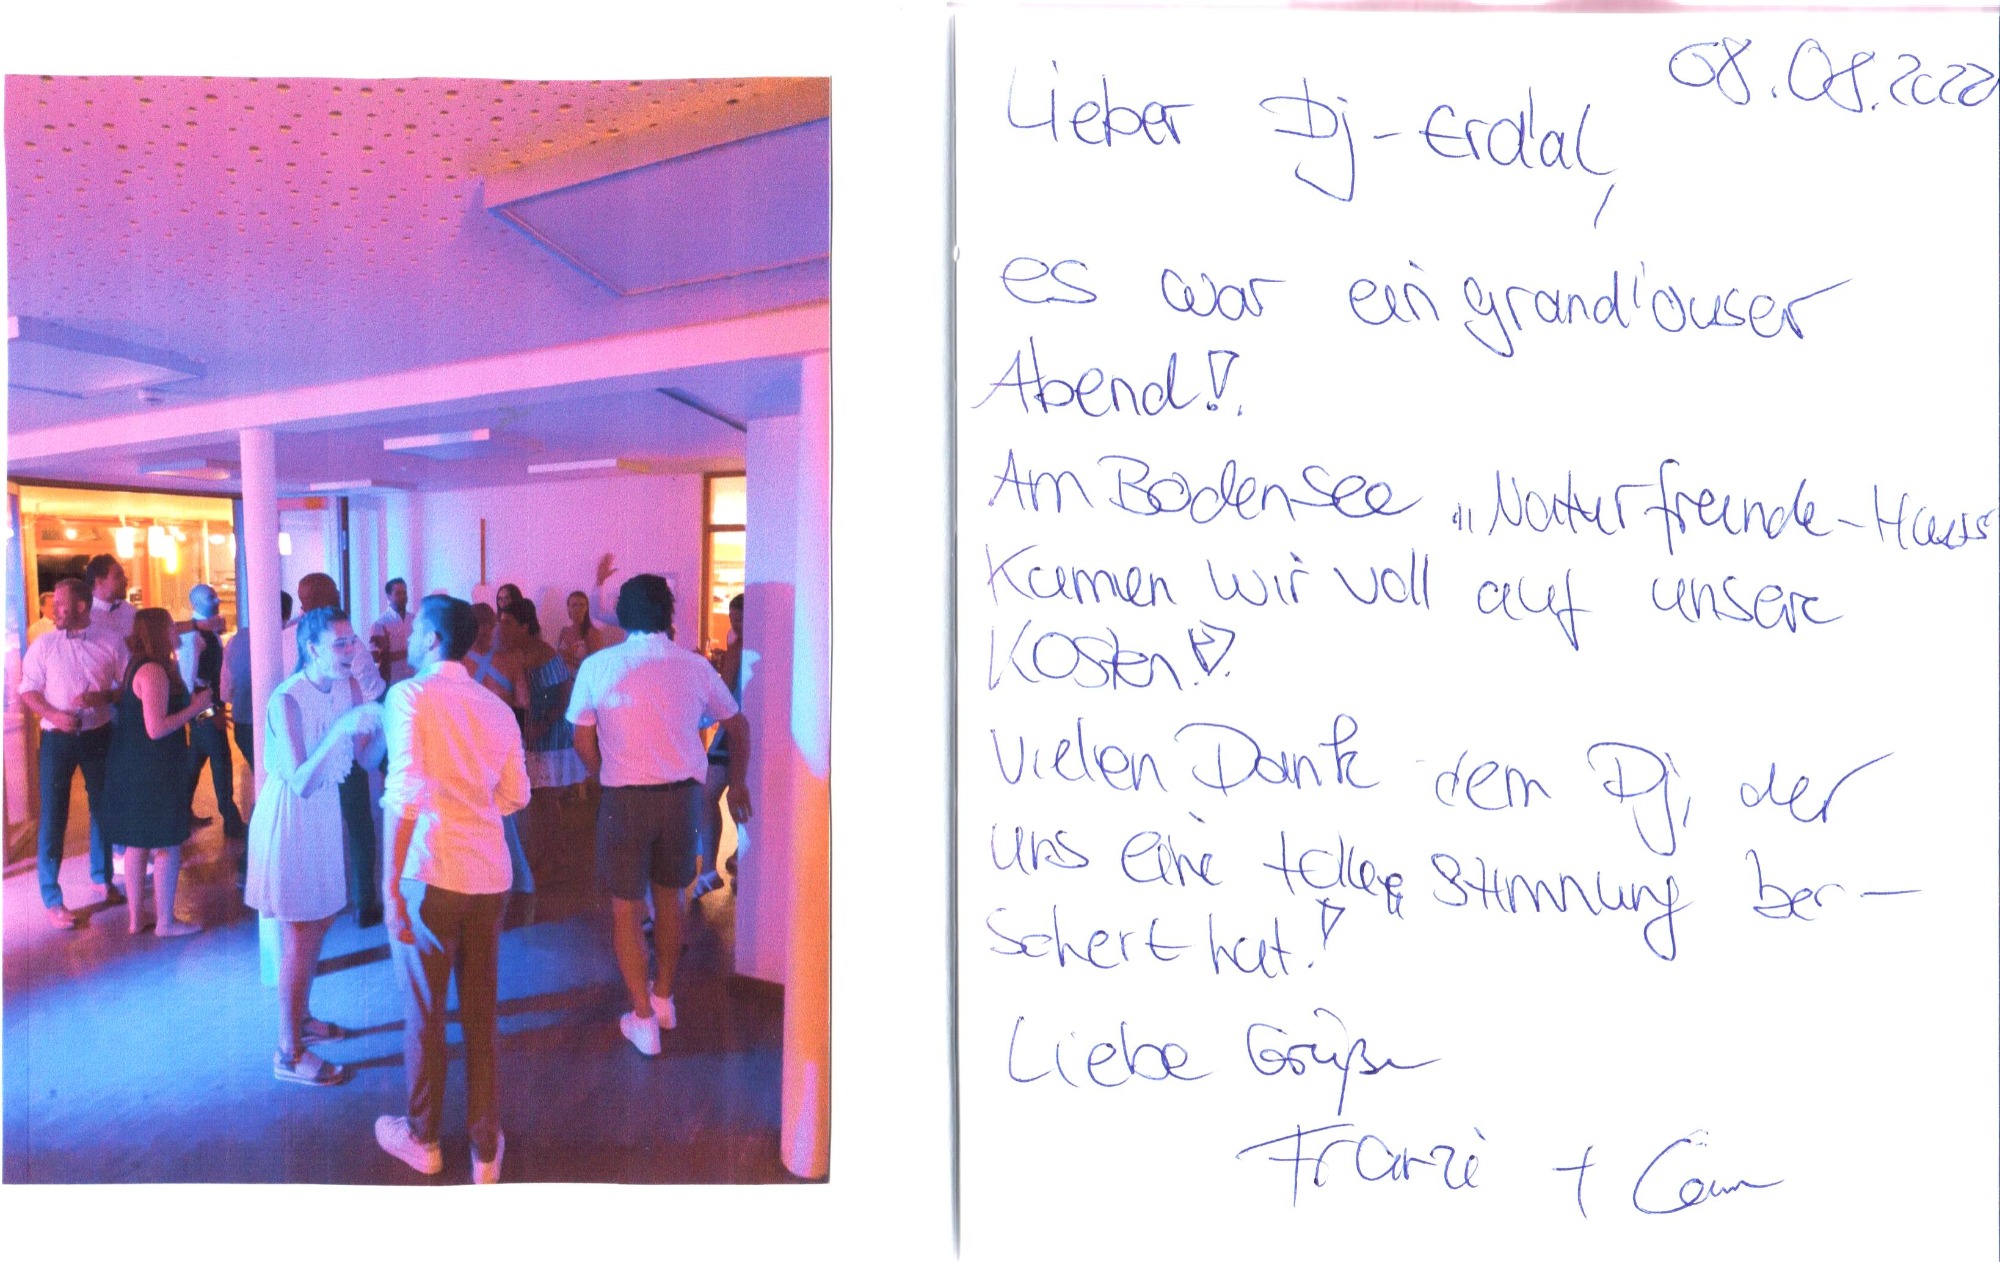 08.08.2022
Lieber Dj-Erdal,
es war ein grand'ouser
Abend!
Am Bodensee „Naturfreunde-Haus"
Kamen wir voll auf unsere
Kosten!
Vielen Dank dem Dj, der
uns eine tolle Stimmung ber-
schert hat!
Liebe Grüße
Franzi +